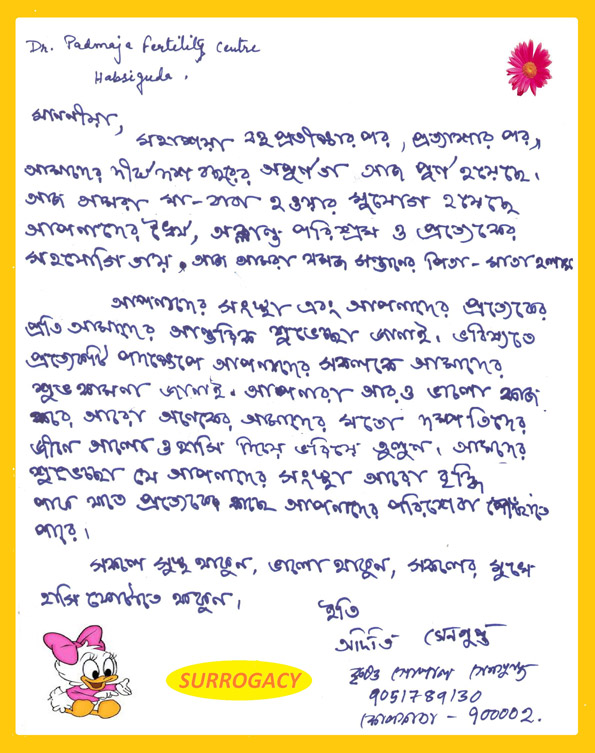 Dr. Padmaja Fertility Centre
Habsiguda.
মাননীয়া,
মহাশয়া বহু প্রতীক্ষার পর, প্রত্যাশার পর,
আমাদের দীর্ঘ দশ বছরের অপূর্ণতা আজ পূর্ণ হয়েছে।
আজ আমরা মা-বাবা হওয়ার সুযোগ হয়েছে
আপনাদের ধৈর্য, অক্লান্ত পরিশ্রম ও প্রত্যেকের
সহযোগিতায়। আজ আমরা যমজ সন্তানের পিতা-মাতা হলাম
আপনাদের সংস্থা এবং আপনাদের প্রত্যেকের
প্রতি আমাদের আন্তরিক শুভেচ্ছা জানাই। ভবিষ্যতে
প্রত্যেকটি পদক্ষেপে আপনাদের সকলকে আমাদের
শুভ কামনা জানাই। আপনারা আরও ভালো কাজ
করে আরো অনেকের আমাদের মতো দম্পতিদের
জীনে আলো ও হাসি দিয়ে ভরিয়ে তুলুন। আমাদের
শুভেচ্ছা যে আপনাদের সংস্থা আরো বৃদ্ধি
পাক যাতে প্রত্যেকের কাছে আপনাদের পরিষেবা পৌঁছাতে
পারে।
সকলে সুস্থ থাকুন, ভালো থাকুন, সকলের মুখে
হাসি ফোটাতে থাকুন।
ইতি
অদিতি সেনগুপ্ত
গোপাল সেনগুপ্ত
9051789130
কোলকাতা - 700002.
SURROGACY